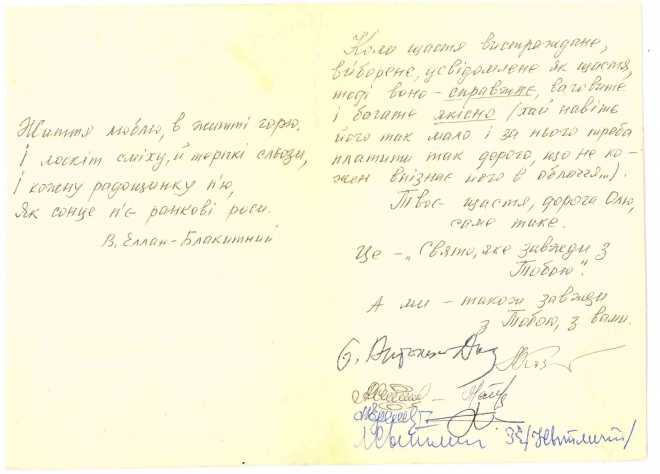 Життя люблю, в житті горю.
І лоскіт сміху, й терпкі сльози,
І кожну радощинку п'ю,
Як сонце п'є ранкові роси.
В. Еллан-Блакитний
Коли щастя вистраждане,
виборене, усвідомлене як щастя,
тоді воно - справжнє, ваговите
і багате якісно (хай навіть
його так мало і за нього треба
платити так дорого, що не ко-
жен впізнає його в обличчя...).
Твоє щастя, дорога Олю,
саме таке.
Це - „Свято, яке завжди з
Тобою".
А ми - також завжди
з Тобою, з вами.